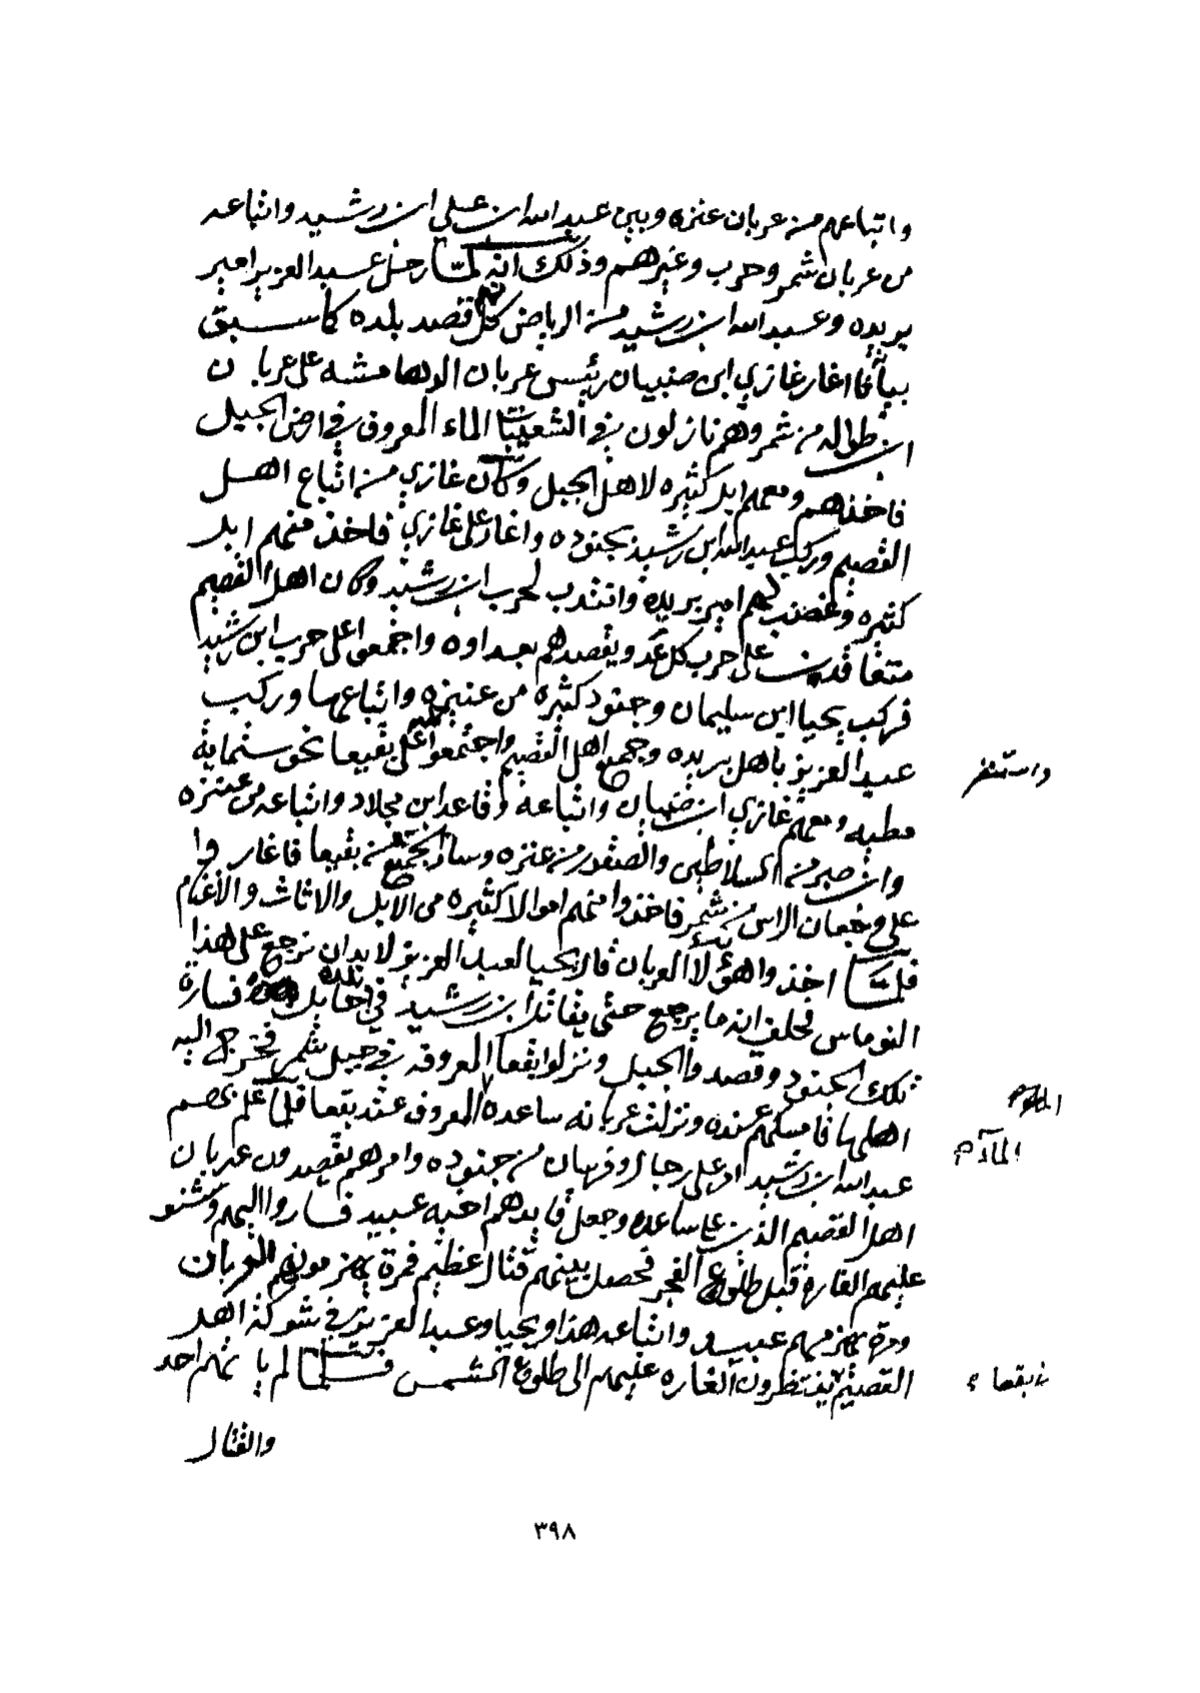 واتباعهم من عربان عنزه وبين عبدالله ابن علي ابن رشيد واتباعه
من عربان شمر وحرب وغيرهم وذلك انه لما رحل عبدالعزيز امير
بريده وعبدالله ابن رشيد من الرياض كل منهم قصد بلده كما سبق
بيانه فاغار غازي ابن ضبيان رئيس عربان الدهامشه على عربان
ابن طواله من شمر وهم نازلون في الشعيبات الماء المعروف في ارض الجبيل
فاخذهم ومعهم ابل كثيره لاهل الجبل وكان غازي من اتباع اهل
القصيم وركب عبدالله ابن رشيد بجنوده واغار على غازي فاخذ منهم ابل
كثيره وغضب لهم امير بريده وانتدب لحرب ابن رشيد وكان اهل القصيم
متعاقدين على حرب كل عدو يقصدهم بعداوه واجمعوا على حرب ابن رشيد
فركب يحيا ابن سليمان وجنود كثيره من عنيزه واتباعها وركب
عبدالعزيز باهل بريده وجميع اهل القصيم واجتمعوا على بقيعا نحو ستماية
واستنفر
مطيه ومعهم غازي ابن ضبيان واتباعه وقاعد ابن مجلاد واتباعه من عنزه
وابن صبر من السلاطين والصقور من عنزه وسار الجميع من بقيعا فاغاروا
على وجعان الراس من شمر فاخذوا منهم اموالا كثيره من الابل والاثاث والاغنام
فلما اخذوا هؤلاء العربان قال يحيا لعبدالعزيز لا بد ان نرجع على هذا
النوماس فحلف انه ما يرجع حتى يقاتل ابن رشيد في بلده حايل فسارة
تلك الجنود وقصدوا الجبل ونزلوا بقعا المعروفة في جبل شمر فخرج اليه
اهلها فامسكهم عنده ونزلت عربانه ساعده المعروف عند بقعا فلما علم بهم
الماء
عبدالله ابن رشيد على رجال وفرسان من جنوده وامرهم يقصدون عربان
اهل القصيم الذين على ساعده وجعل قايدهم اخيه عبيد فساروا اليهم وشنو
عليهم الغارة قبل طلوع الفجر فحصل بينهم قتال عظيم فمرة يهزمونهم العربان
ومرة يهزمهم عبيد واتباعه هذا ويحيا وعبدالعزيز في شوكة اهل
القصيم ينتظرون الغاره عليهم الى طلوع الشمس فلما لم ياتهم احد
في بقعاء
والقتال
٣٩٨